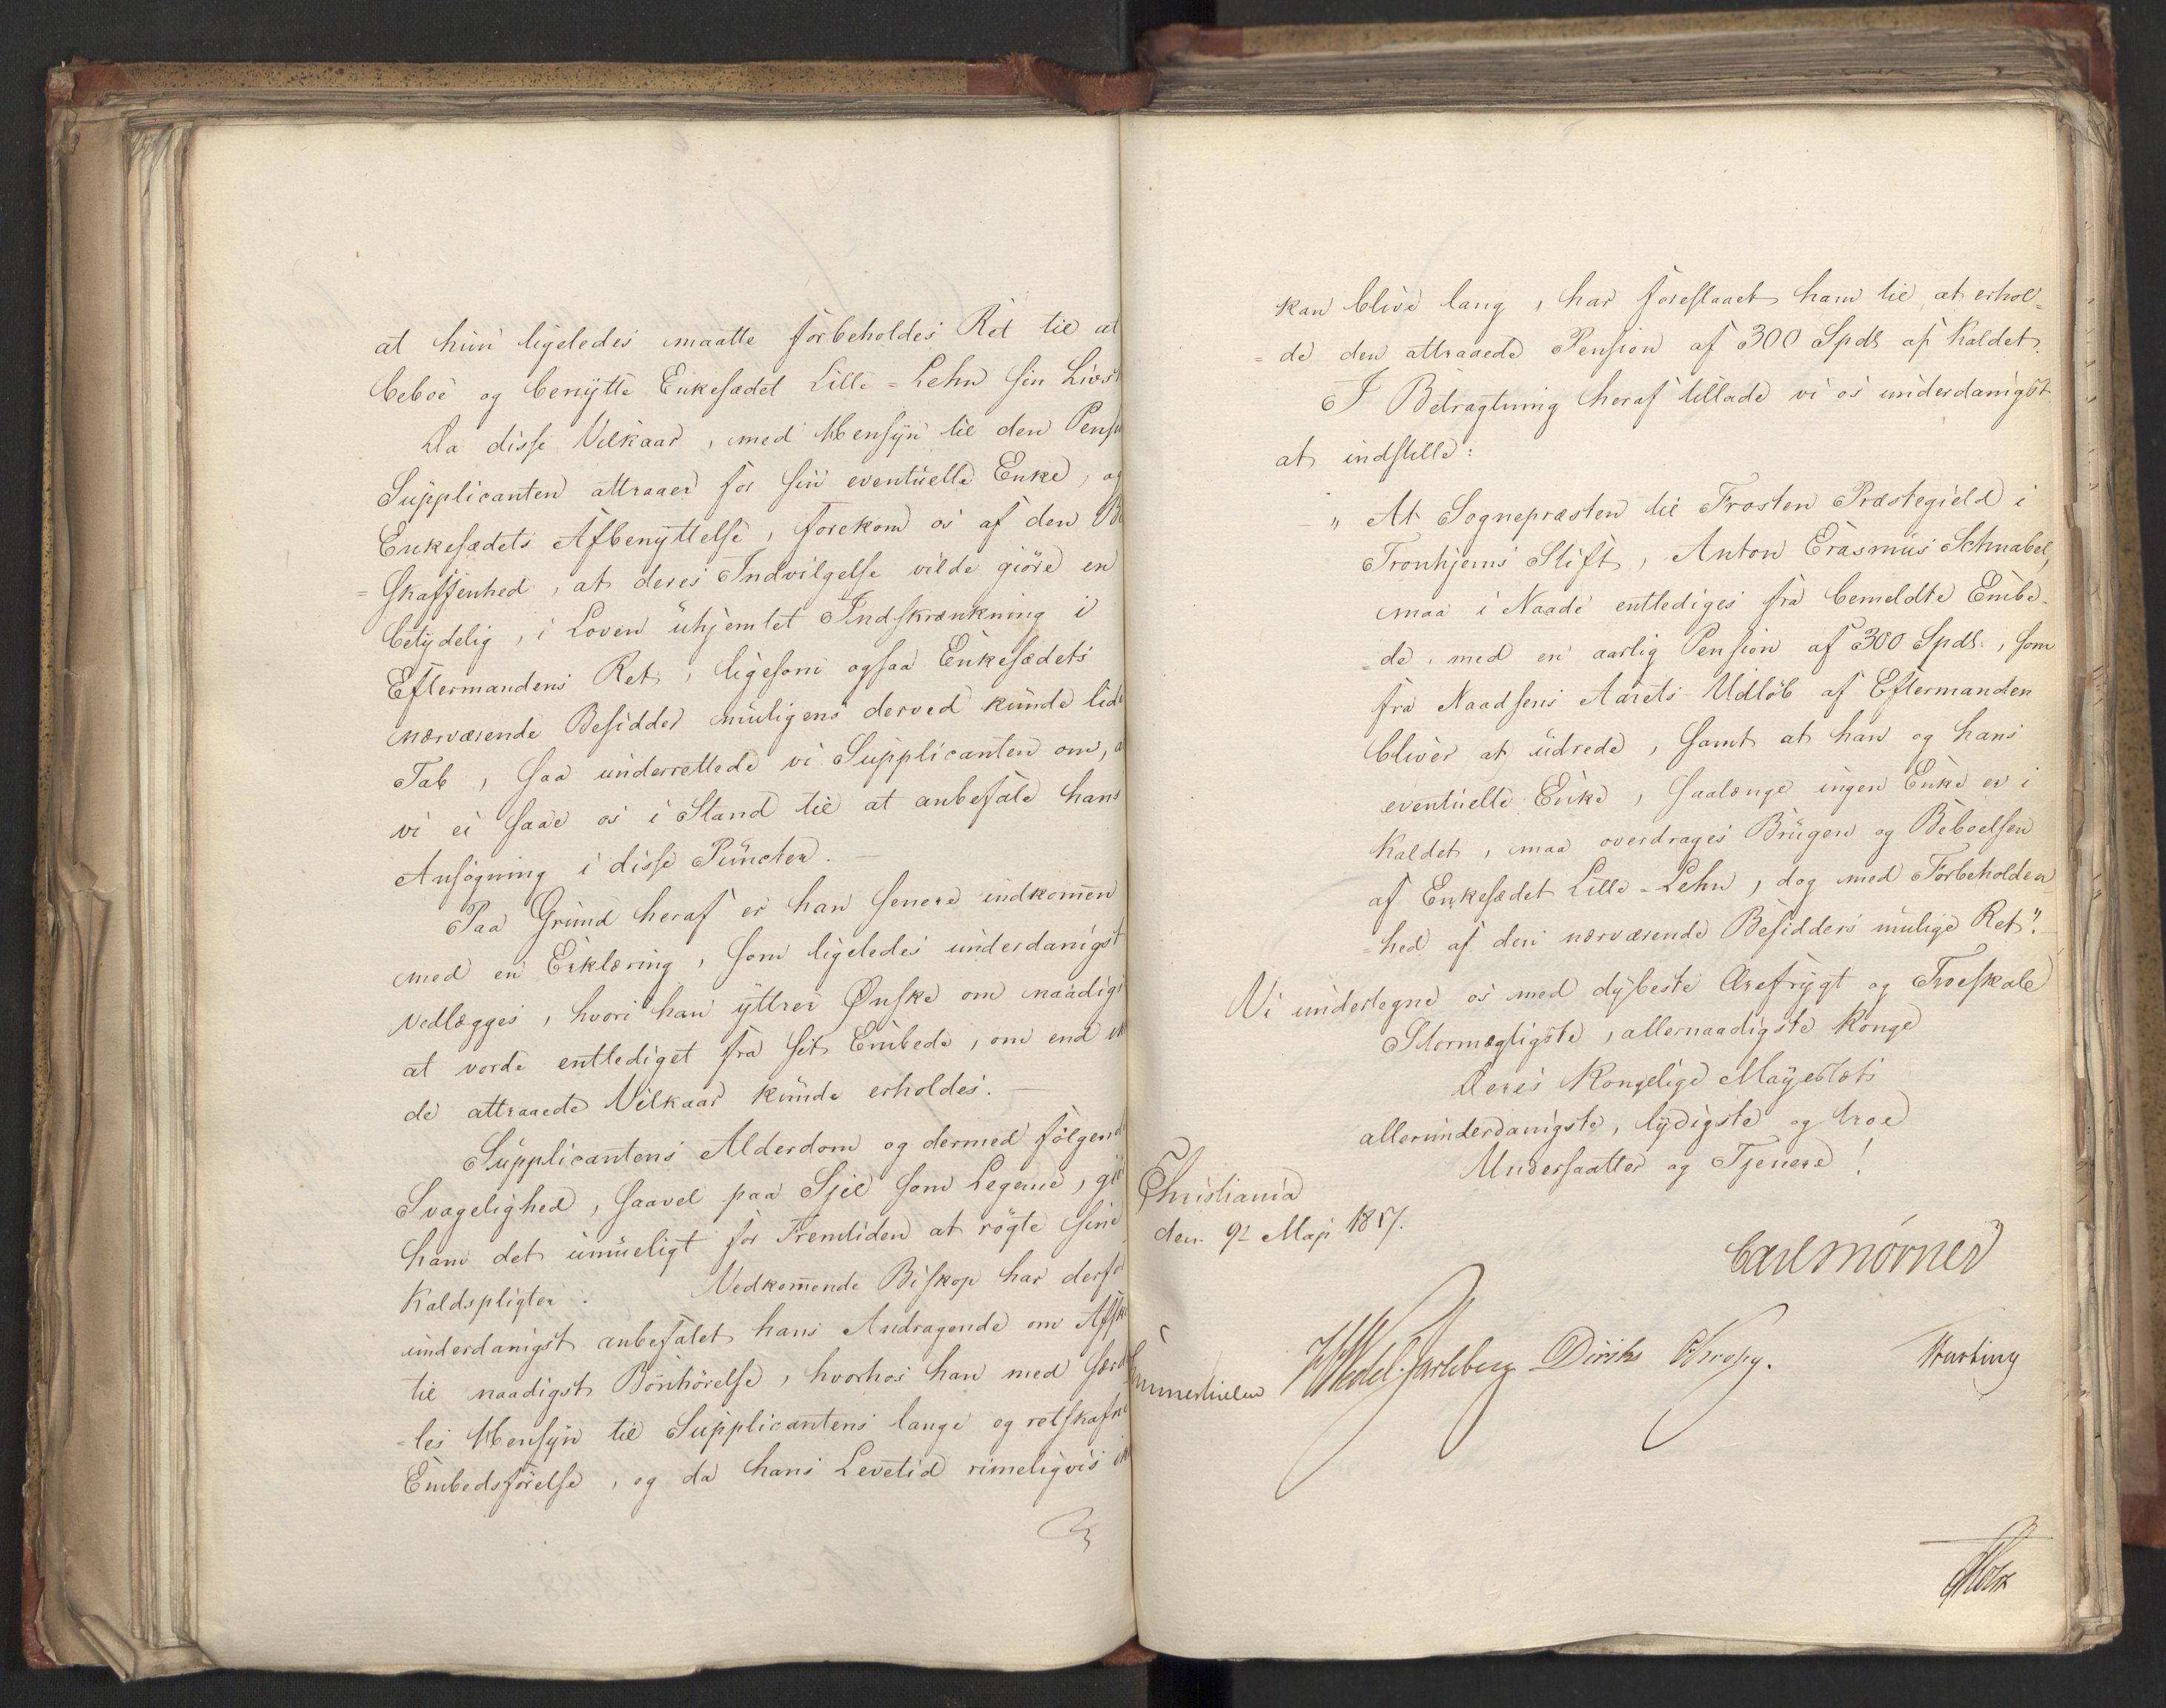 at hun ligeledes maatte forbeholdes Ret til at
beboe og benytte Enkesædet Lille-Lehn sin Livs
Da disse Vilkaar, med Hensyn til den Pens
Supplicanten attraaer for sin eventuelle Enke, og
Enkesædets Afbenyttelse, forekom os af den Be
=skaffenhed, at deres Indvilgelse vilde giöre en
betydelig, i Loven uhjemlet Indskrænkning i
Eftermandens Ret, ligesom ogsaa Enkesædets
nærværende Besidder muligens derved kunde lide
Tab, saa underrettede vi Supplicanten om, a
vi ei saae os i Stand til at anbefale hans
Ansögning i disse Puncter. —
Paa Grund heraf er han senere indkom̄en
med en Erklæring, som ligeledes underdanigst
vedlægges, hvori han yttrer Ønske om naadigs
at vorde entlediget fra sit Embede, om end ei
de attraaede Vilkaar kunde erholdes. —
Supplicantens Alderdom og dermed fölgende
Svagelighed, saavel paa Sjel som Legeme, giör
ham det umueligt for Fremtiden at rögte sine
Kaldspligter. Vedkom̄ende Biskop har derfo
underdanigst anbefalet hans Andragende om Afsk
til naadigst Bönhörelse, hvorhos han med særde
=les Hensyn til Supplicantens lange og retskafne
Embedsförelse, og da hans Levetid rimeligvis ik
kan blive lang, har foreslaaet ham til at erhol=
=de den attraaede Pension af 300 Spdl af Kaldet.
I Betragtning heraf tillade vi os underdanigst
at indstille:
"At Sognepræsten til Frosten Præstegield i
Tronhjems Stift, Anton Erasmus Schnabel,
maa i Naade entlediges fra bemeldte Embe=
=de, med en aarlig Pension af 300 Spdl:, som
fra Naadsens Aarets Udlöb af Eftermanden
bliver at udrede, samt at han og hans
eventuelle Enke, saalænge ingen Enke er i
Kaldet, maa overdrages Brugen og Beboelsen
af Enkesædet Lille-Lehn, dog med Forbeholden
=hed af den nærværende Besidders mulige Ret". —
Vi undertegne os med dybeste Ærefrygt og Troeskab
Stormægtigste, allernaadigste Konge
Deres Kongelige Mayestæts
allerunderdanigste, lydigste og troe
Undersaatter og Tjenere!
Christiania
den 9de Maji 1817.
Carl Mörner
Sommerhielm HWedel-Jarlsberg Diriks Krogh. Hurting
Holst